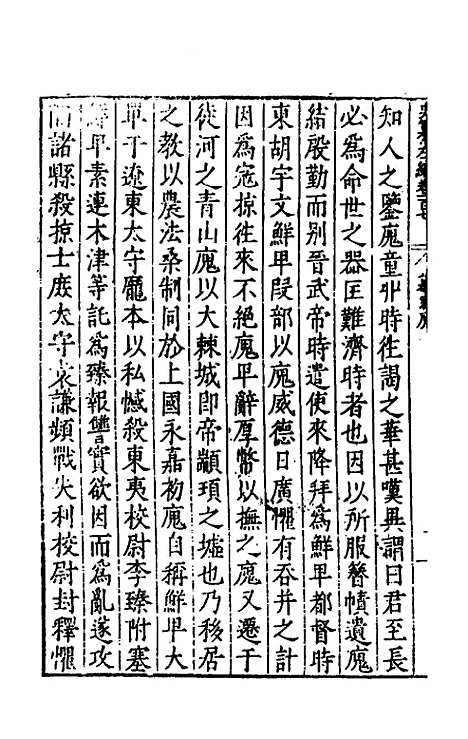 知人之鑒廆童丱時往謁之華甚嘆異謂曰君至長
必爲命世之器匡難濟時者也因以所服簪幘遺廆
結殷勤而別晉武帝時遣使來降拜爲鮮卑都督時
東胡宇文鮮卑段部以廆威德日廣懼有吞并之計
因爲寇掠往來不絕廆卑辭厚幣以撫之廆又遷于
徒河之青山廆以大棘城即帝顓頊之墟也乃移居
之教以農法桑制同於上國永嘉初廆自稱鮮卑大
單于遼東太守龐本以私憾殺東夷校尉李臻附塞
鮮卑素連木津等託爲臻報讐實欲因而爲亂遂攻
陷諸縣殺掠士庶太守袁謙頻戰失利校尉封釋懼